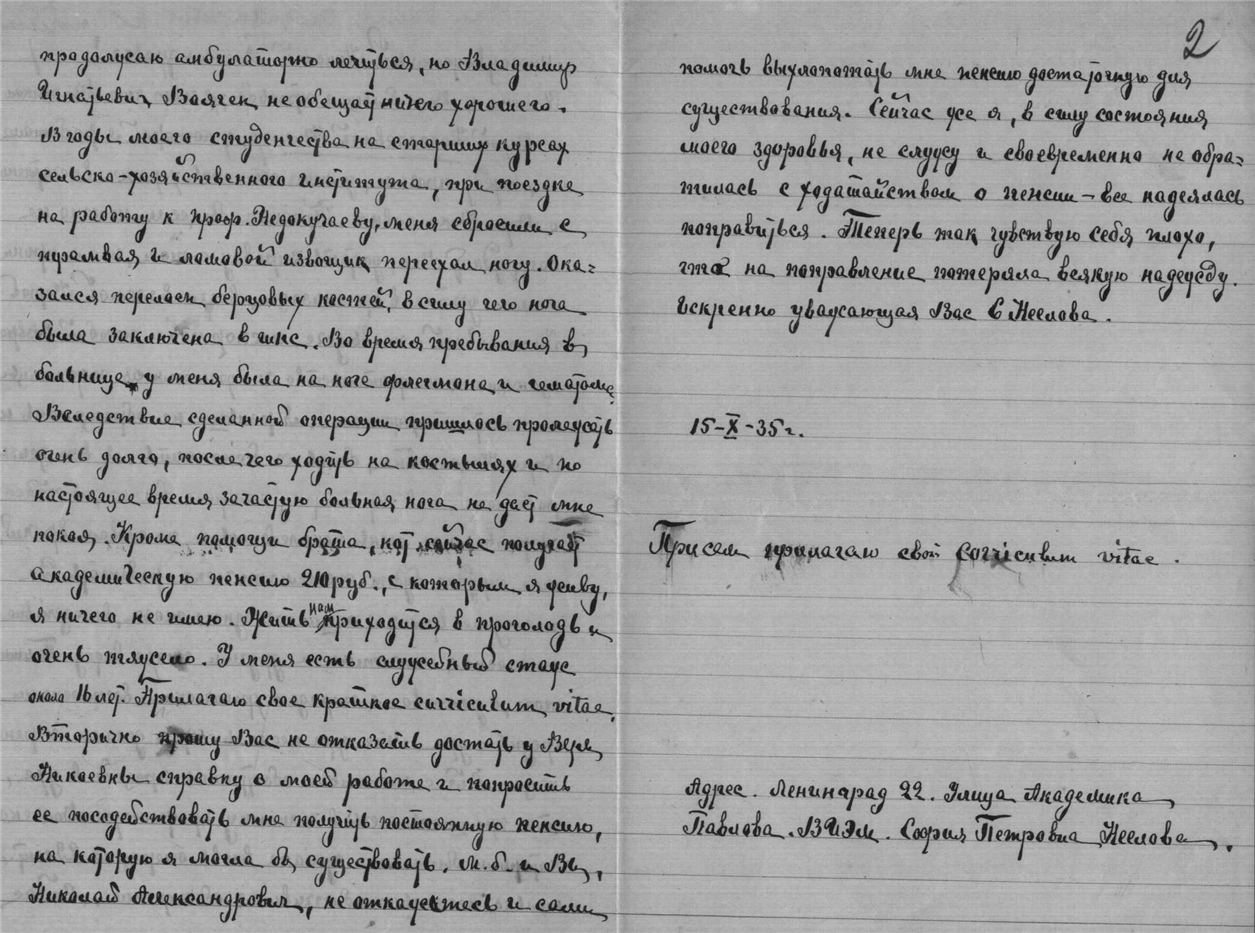 продолжаю амбулаторно лечиться, но Владимир
Игнатьевич Воячек не обещает ничего хорошего.
В годы моего студенчества на старших курсах
сельско-хозяйственного института, при поездке
на работу к проф. Недокучаеву, меня сбросили с
трамвая и ломовой извощик переехал ногу. Ока=
зался перелом берцовых костей, в силу чего нога
была заключена в гипс. Во время пребывания в
больнице у меня была на ноге флегмона и гематома.
Вследствие сделанной операции пришлось пролежать
очень долго, после чего ходить на костылях и по
настоящее время зачастую больная нога не дает мне
покоя. Кроме помощи брата, кот. сейчас получает
академическую пенсию 210 руб., с которым я живу,
я ничего не имею. Жить нам приходится в проголодь и
очень тяжело. У меня есть служебный стаж
около 16 лет. Прилагаю свое краткое curriculum vitae.
Вторично прошу Вас не отказать достать у Веры
Никаевны справку о моей работе и попросить
ее посодействовать мне получить постоянную пенсию,
на которую я могла бы существовать. М.б. и Вы,
Николай Александрович, не откажетесь и сами
2
помочь выхлопотать мне пенсию достаточную для
существования. Сейчас же я, в силу состояния
моего здоровья, не служу и своевременно не обра=
тилась с ходатайством о пенсии – все надеялась
поправиться. Теперь так чувствую себя плохо,
что на поправление потеряла всякую надежду.
Искренно уважающая Вас С Неелова.
15-X-35 г.
При сем прилагаю свой curriculum vitae.
Адрес. Ленинград 22. Улица Академика
Павлова. ВИЭМ. София Петровна Неелова.